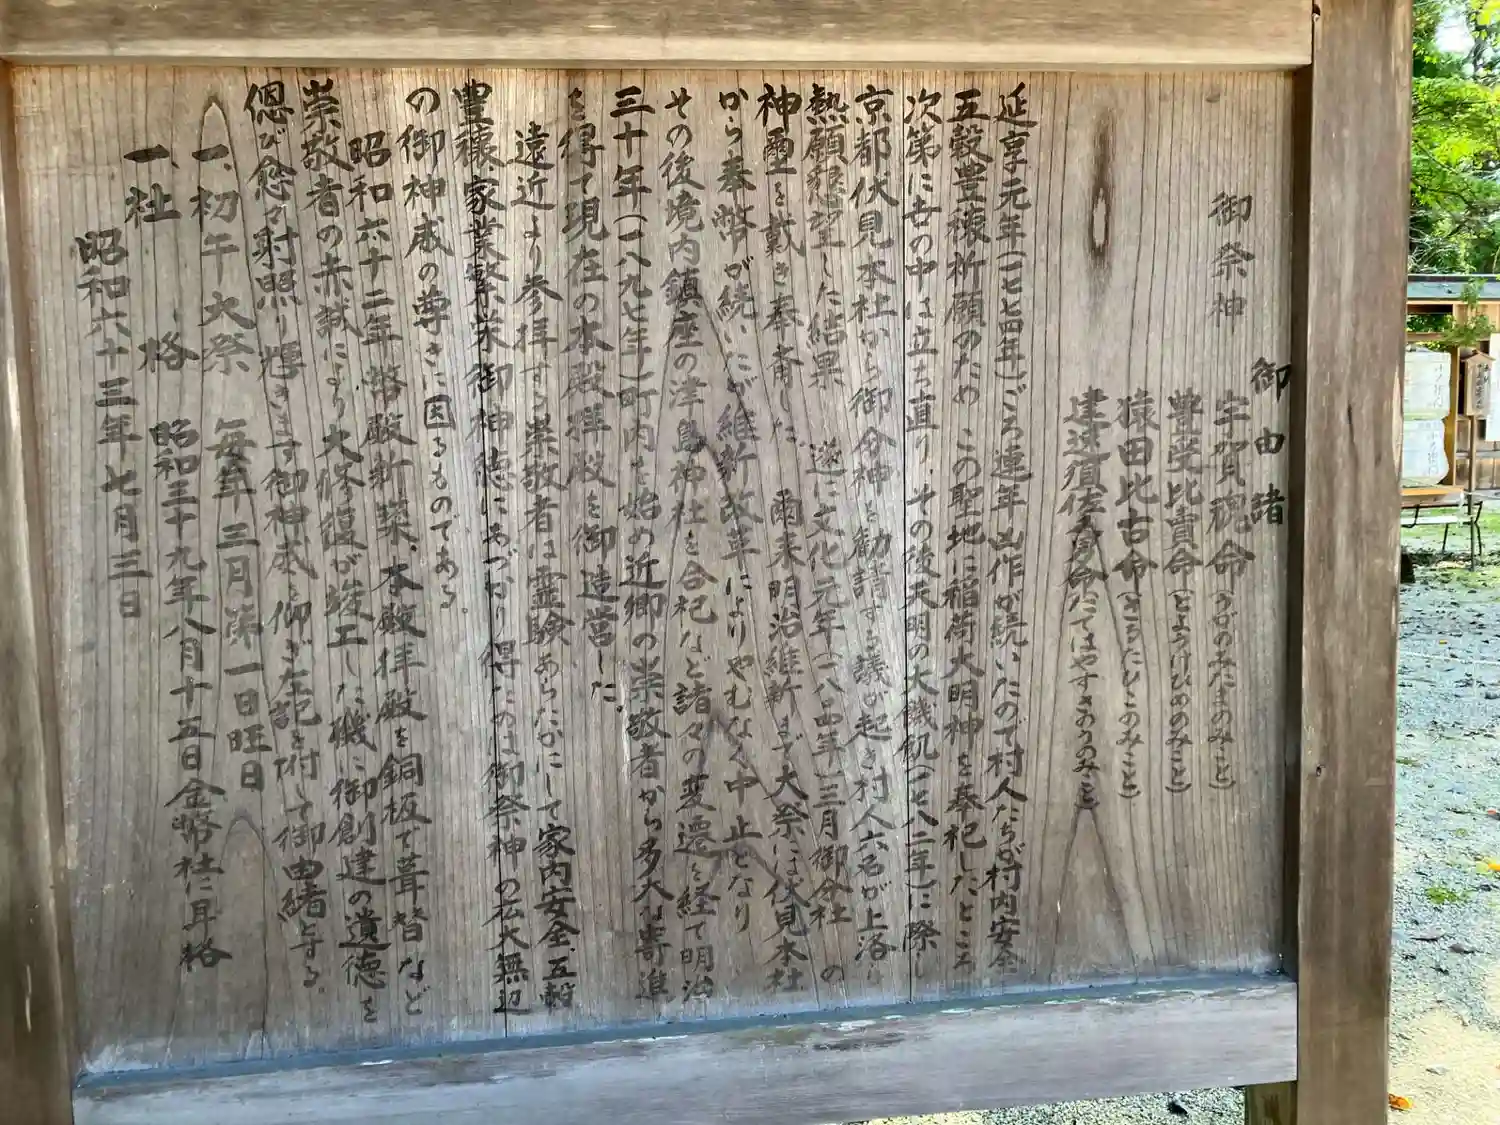 御由緒
御祭神
宇賀魂命(うがのみたまのみこと)
豊受比売命(とようけびめのみこと)
猿田比古命(さるたひこのみこと)
建速須佐命(たてはやすさのうのみこと)
延享元年(一七七四年)ごろ連年凶作が続いたので村人たちが村内安全
五穀豊穣祈願のため この聖地に稲荷大明神を奉祀したところ
次第に世の中は立ち直り、その後天明の大飢饉(一七八二年)に際し
京都伏見本社から御分神を勧請する議が起き村人六名が上洛し
熱願懇望した結果 遂に文化元年(一八四年)三月御分社の
神璽を戴き奉斎した 爾来明治維新まで大祭には伏見本社
から奉幣が続いたが維新改革によりやむなく中止となり
その後境内鎮座の津島神社を合祀など諸々の変遷を経て明治
三十年(一八九七年)町内を始め近郷の崇敬者から多大な寄進
を得て現在の本殿拝殿を御造営した。
遠近より参拝する崇敬者は霊験あらたかにして家内安全、五穀
豊穣、家業繁栄御神徳にあづかり得たのは御祭神の広大無辺
の御神威の尊きに因るものである。
昭和六十二年幣殿新築、本殿拝殿を銅板で葺替など
崇敬者の赤誠により大修復が竣工した機に御創建の遺徳を
偲び愈々射照り輝きます御神威を仰ぎ左記を付して御由緒とする。
一、初午大祭 毎年三月第一日旺日
一、社格 昭和三十九年八月十五日金幣社に昇格
昭和六十三年七月三日